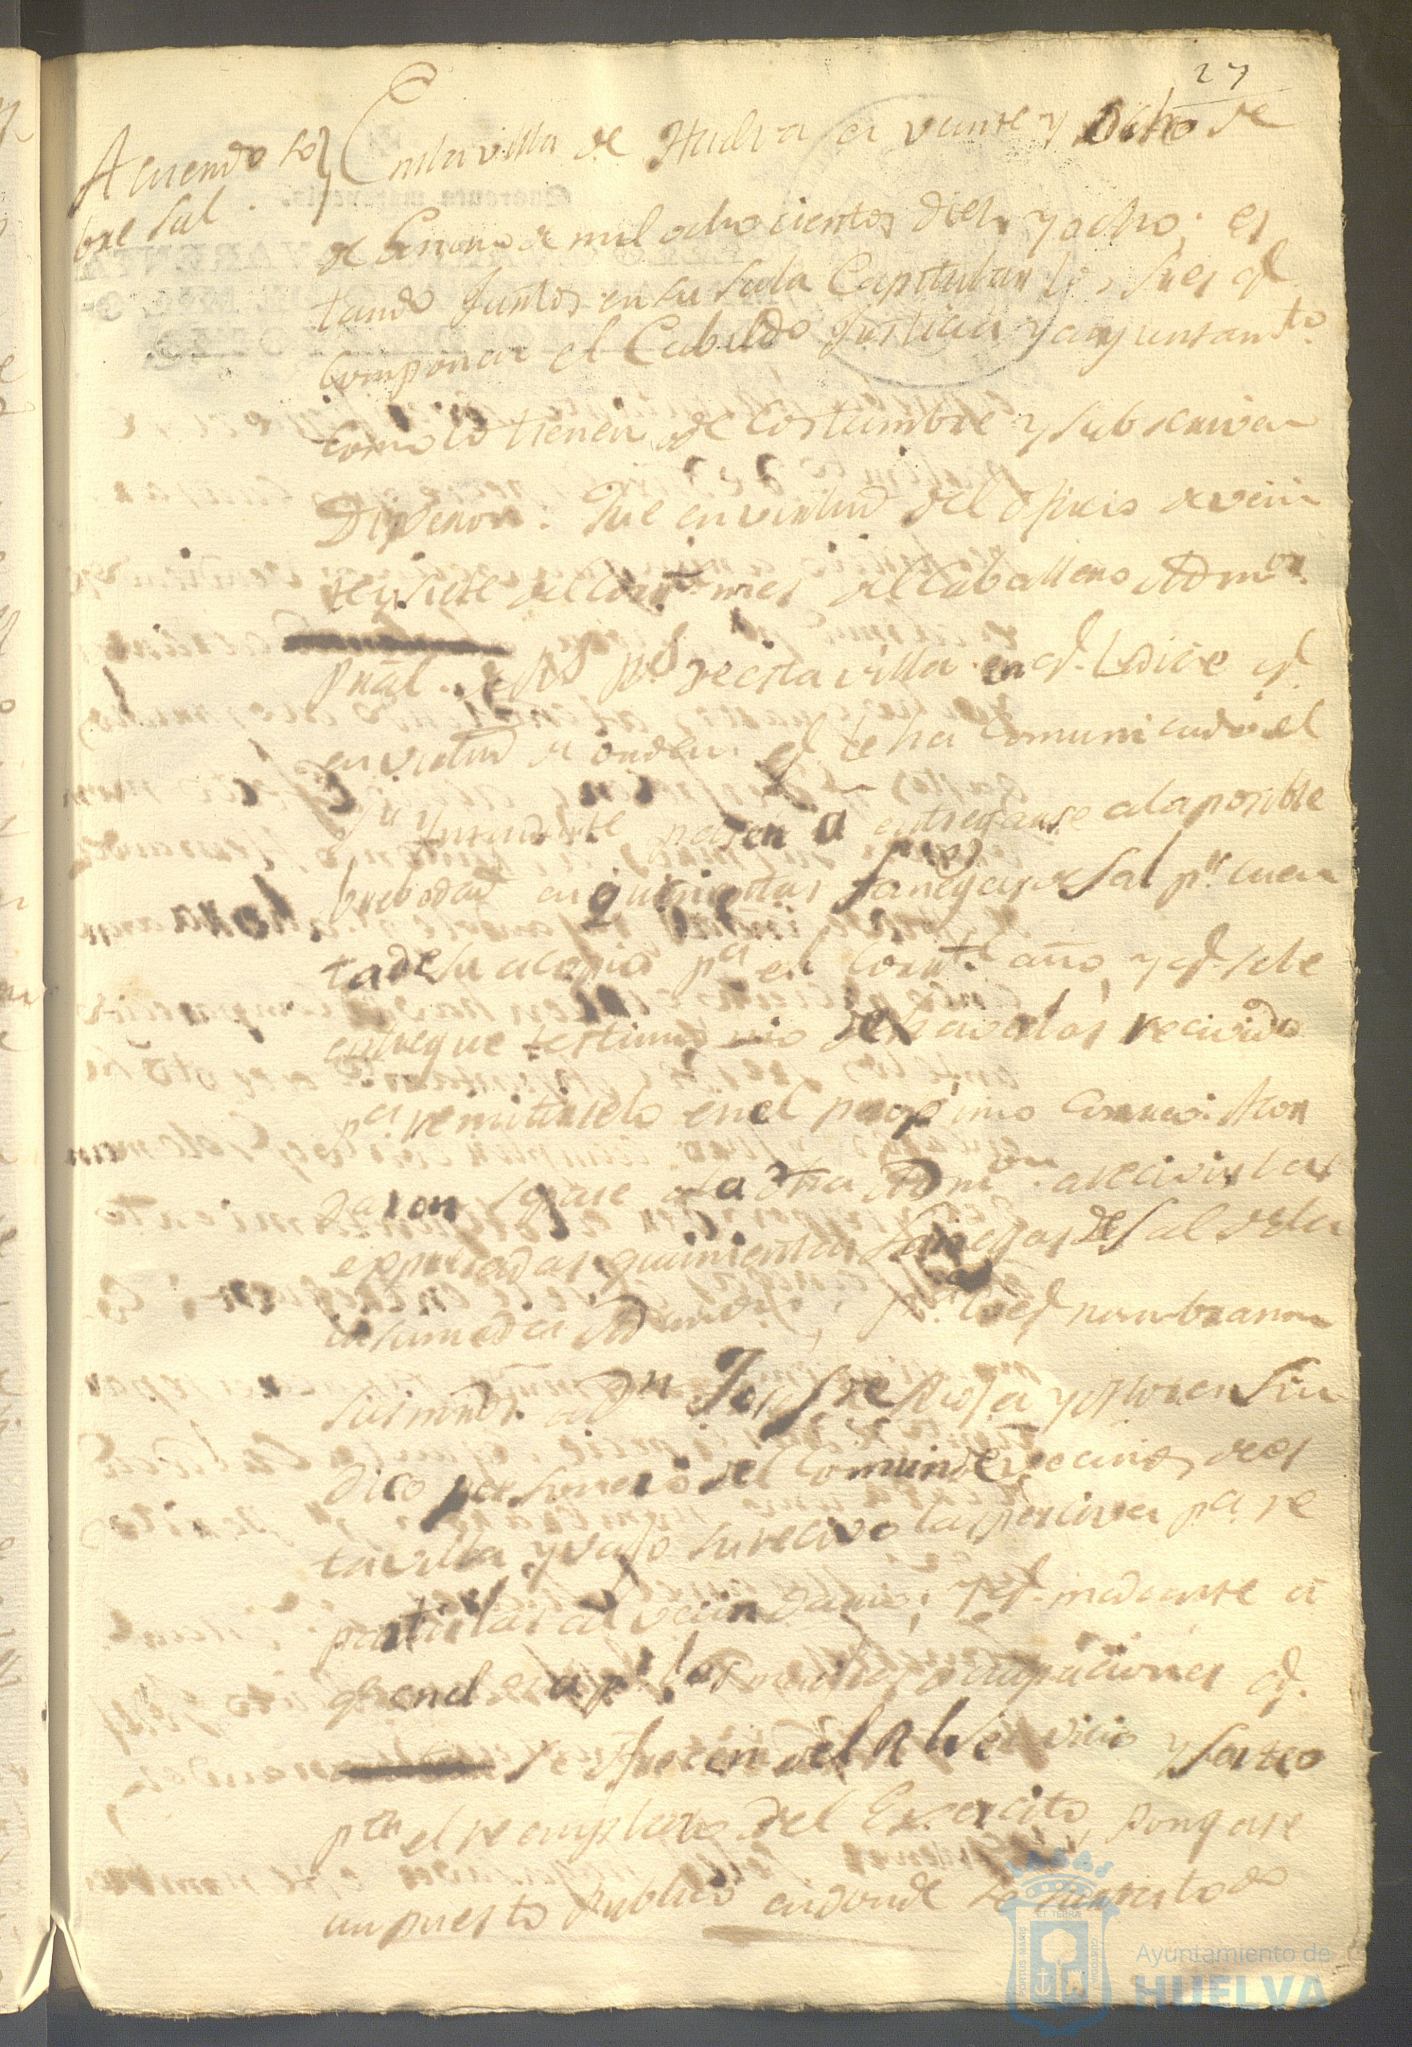 27
Acuerdo so
bre sal.
En la villa de Huelva en veinte y ocho de
de Enero de mil ochocientos diez y ocho; es
tando juntos en su sala Capitular los Sres q.
componen el Cabildo Justicia y ayuntamto.
como lo tienen de costumbre y subscriven
Digeron: Que en virtud del oficio de vein
te y siete del corrte. mes del Caballero Admor.
pral. de esta villa en q. dice q.
en virtud de orden q. le ha comunicado el
Yntendente pasen a entregarse a la posible
brebedad en quinientas fanegas de sal pr. cuen
ta de su acopio pa. el corrte. año, y q. se le
entregue testimonio de haverlas recivido
pa. remitirselo en el proximo correo: Acor
daron se pase a la dha Admon. a recivir las
expresadas quinientas fanegas de sal de la
Admor., pa. lo q. nombraron
sus mrds. a Dn. Jose de Sin
dico personero del comun de vecinos de es
ta villa, y vajo su recivo las perciva pa. re
partirlas al vecindario; y q. mediante a
ocupaciones q.
se ofrecen del Rl. Servicio y sorteo
pa. el reemplazo del Exercito, pongase
un puesto Publico en donde se surta todo
Ayuntamiento de
HUELVA